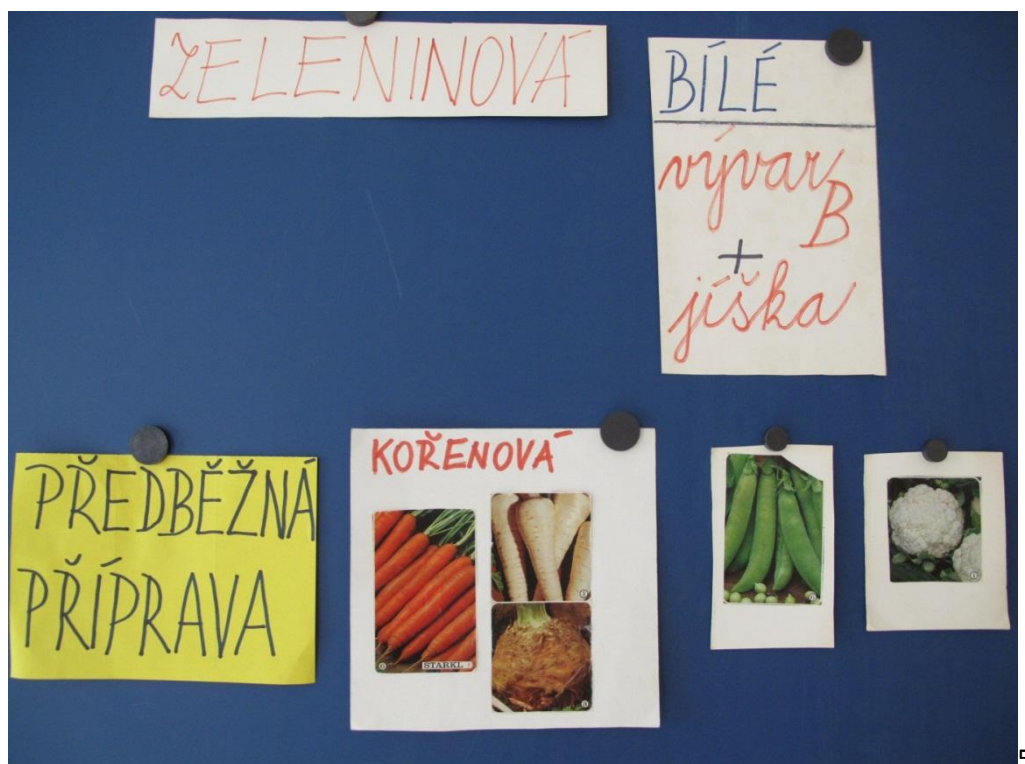 ZELENINOVÁ
BÍLÉ
vývar B
+
jíška
PŘEDBĚŽNÁ
PŘÍPRAVA
KOŘENOVÁ
STARKL